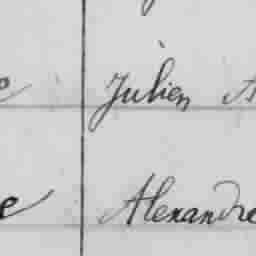 Julien
Alexandre